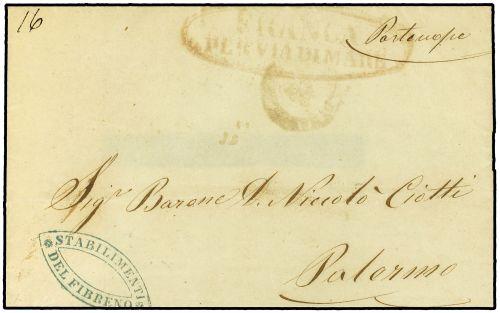 16
FRANCA
PER VIA DI MARE
Partenope
Sigr. Barone D. Niccolò Ciotti
Palermo
STABILIMENTI
DEL FIBRENO